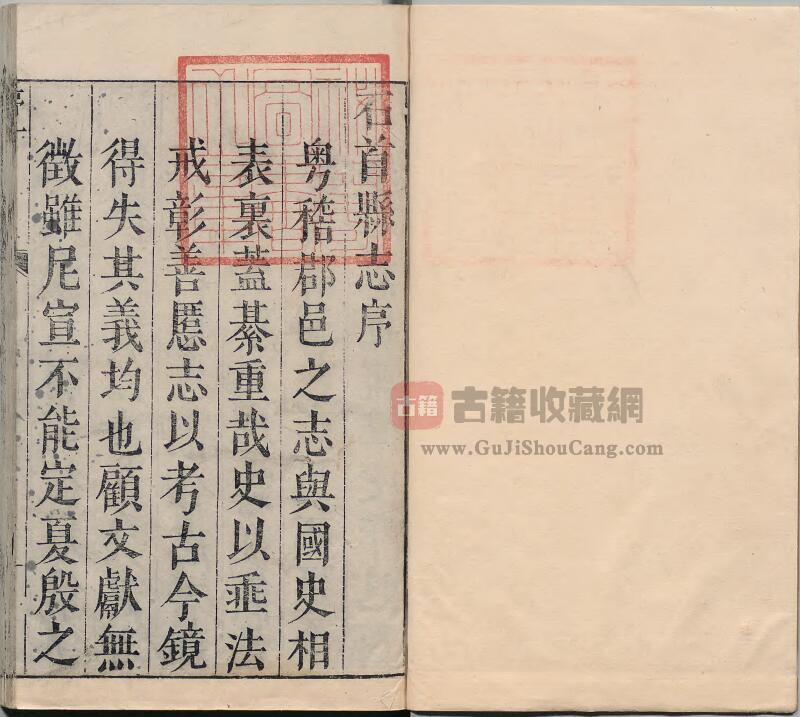 石首縣志序
粤稽郡邑之志與國史相
表裏蓋綦重哉史以垂法
戒彰善慝志以考古今鏡
得失其義均也顧文獻無
徵雖尼宣不能定夏殷之
古籍
古籍收藏網
www.GuJiShouCang.com